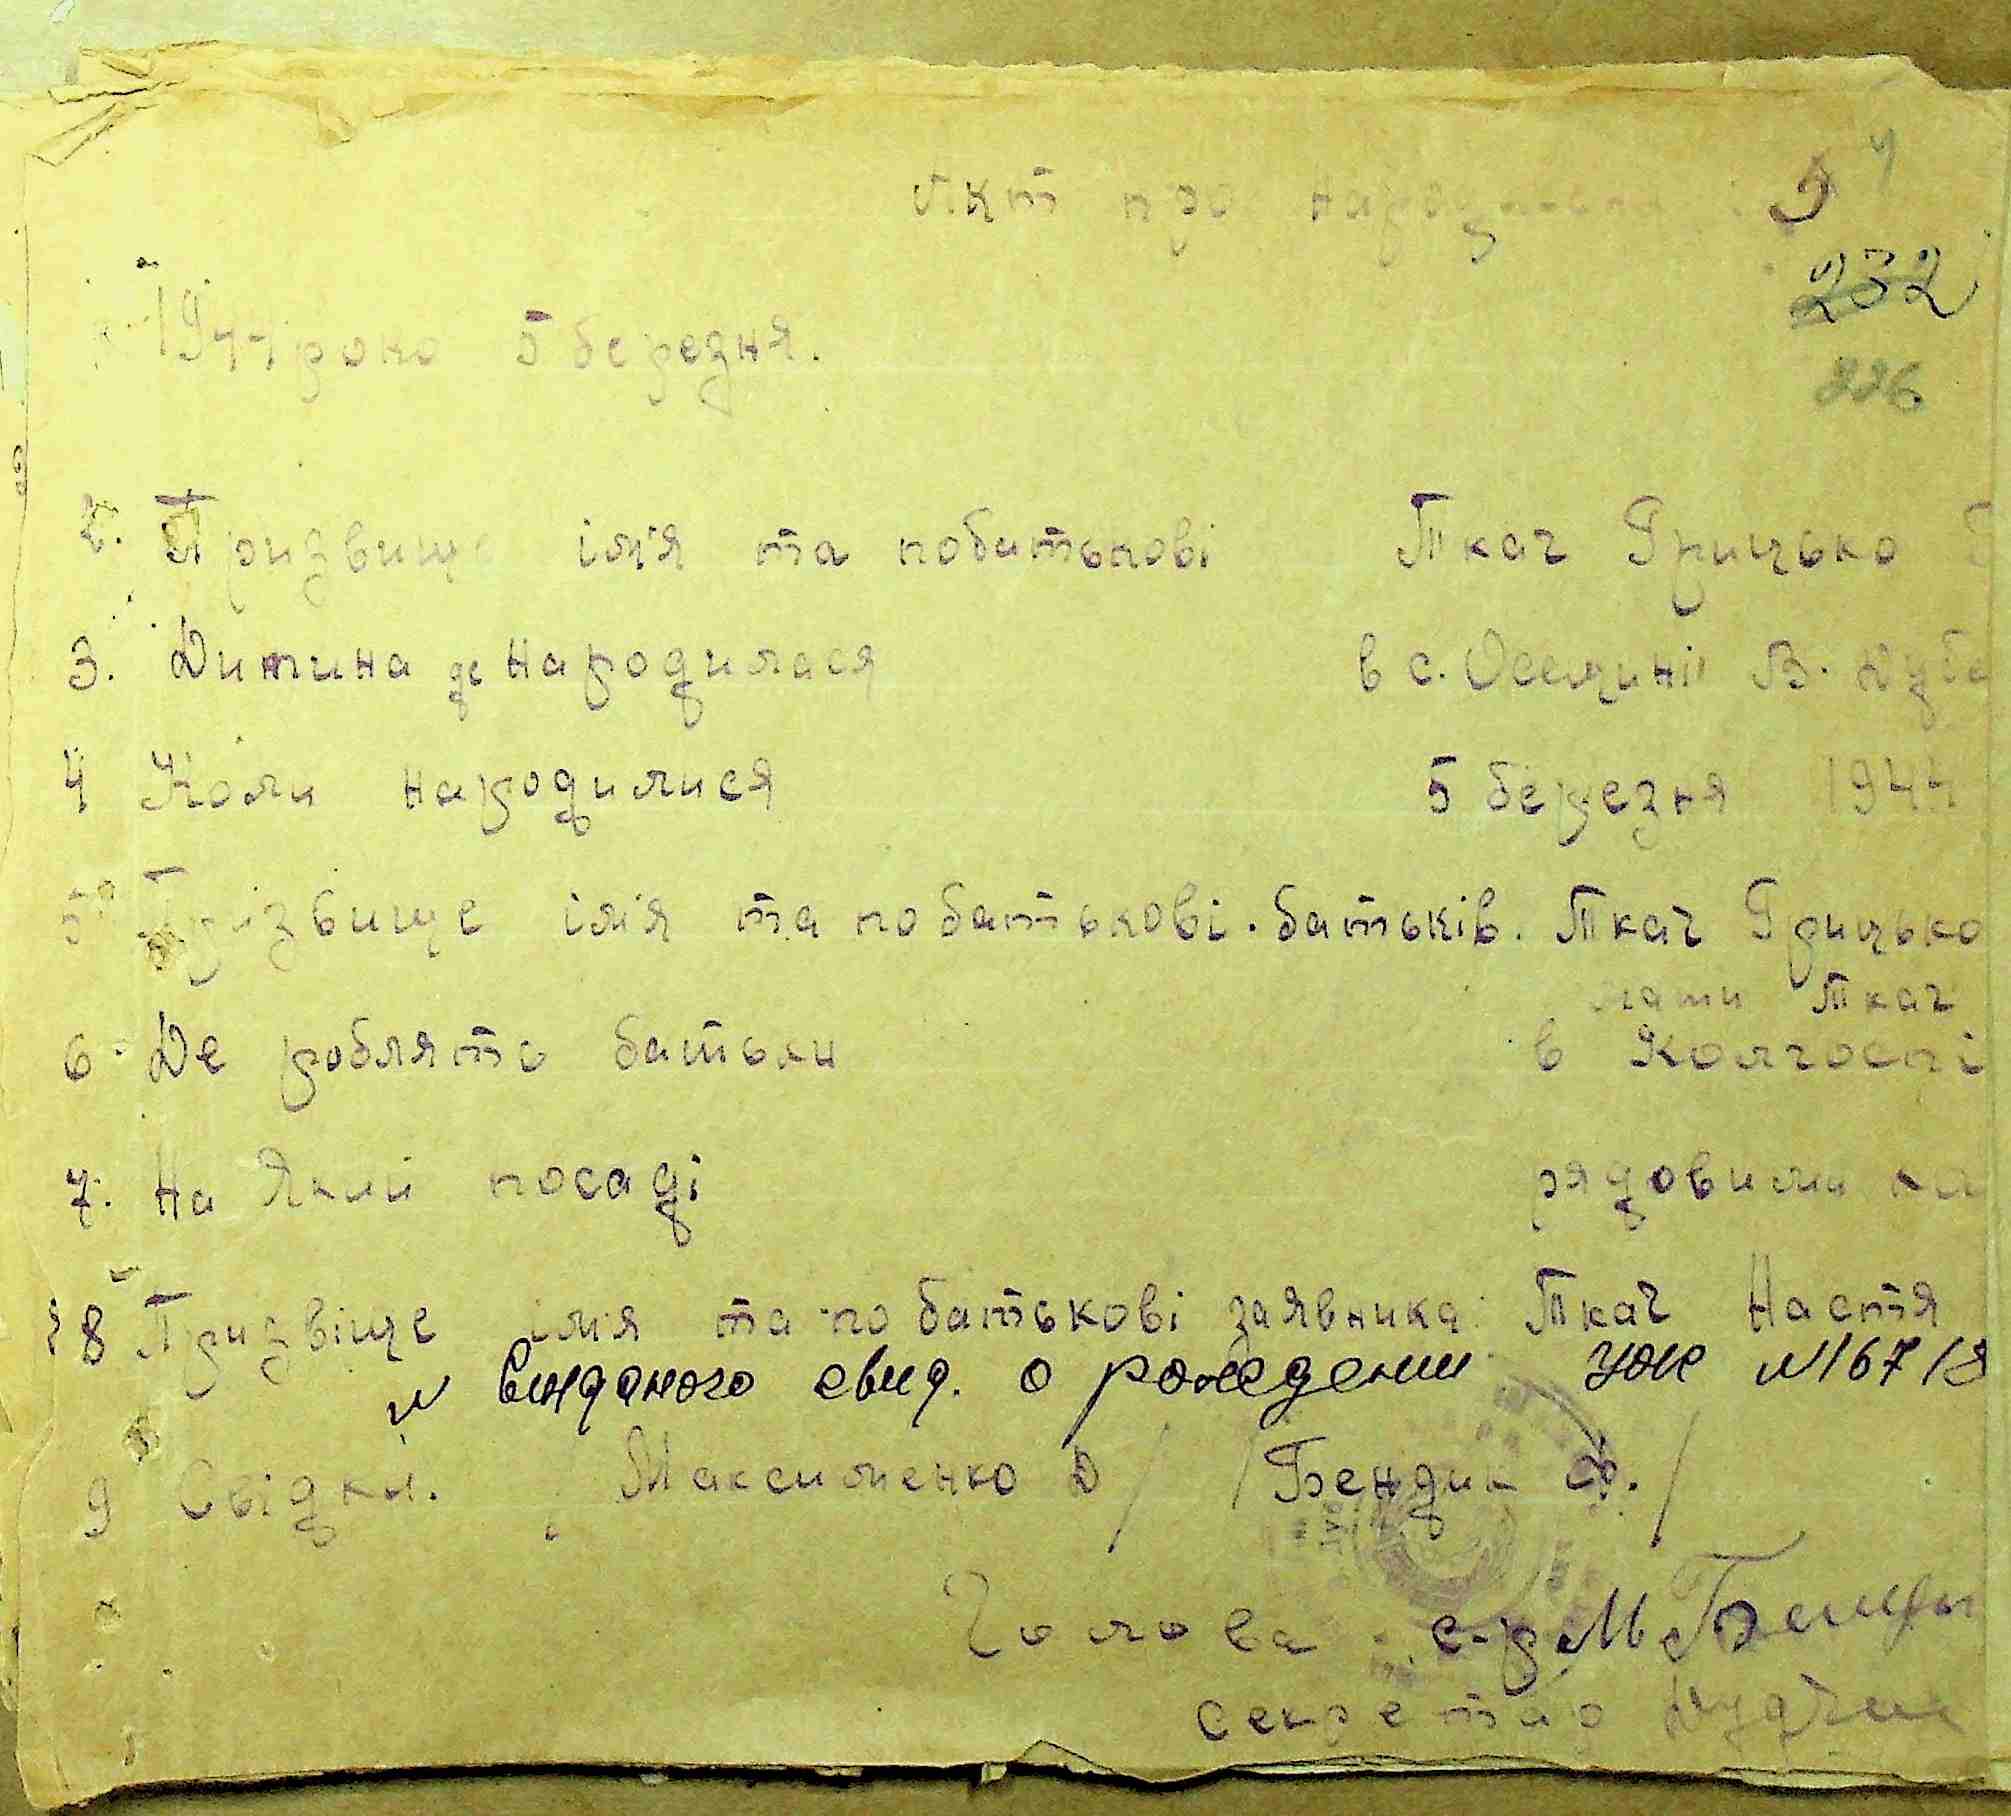 Акт про народження 9 4
232
1944 роко 5 березня.
226
2. Призвище ім'я та побатькові Ткач Грицько
3. Дитина де народилася в с. Оселині В.
4 Коли народилися 5 березня 1944
5 Прізвище ім'я та побатькові. батьків. Ткач Грицько
мати Ткач
6. Де роблять батьки в Колгоспі
7. На Який посаді рядовими
8 Призвіще ім'я та по батькові заявника: Ткач Настя
N винданого свид. о рождении УЖ N 16718
9 Свідки. Максименко Д / / Бендик Ф. /
Голова с-р М
секретар